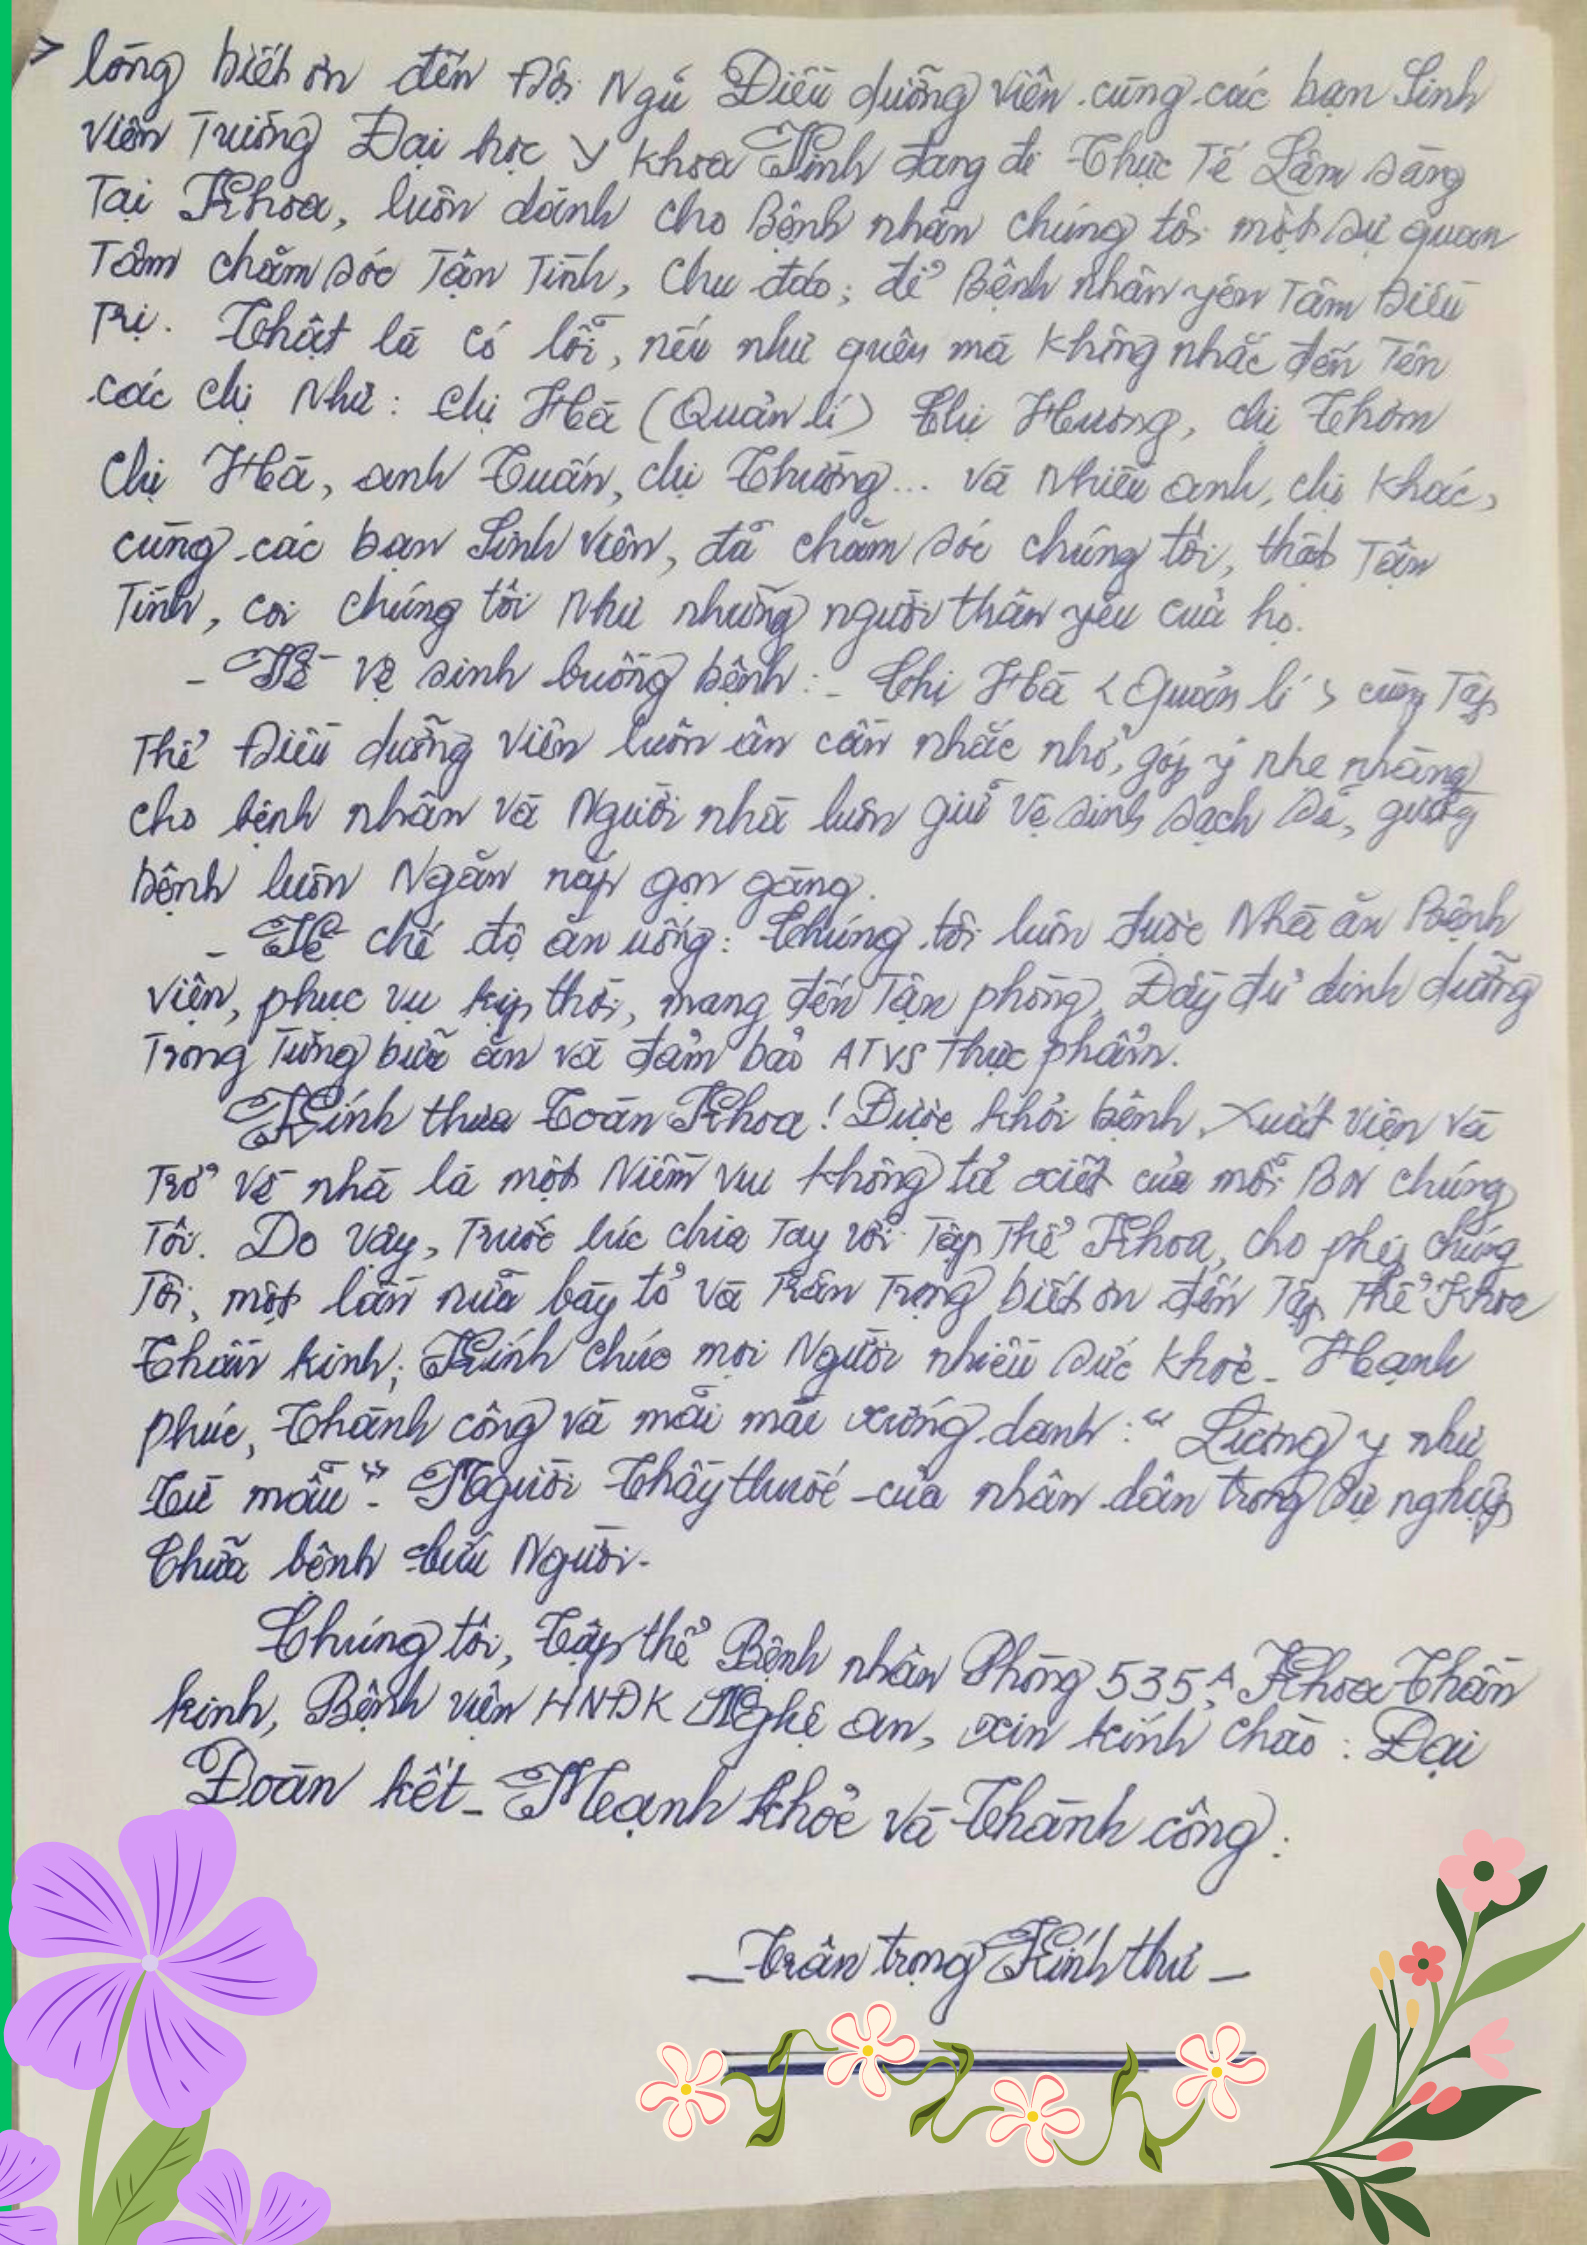 > lòng biết ơn đến Đội Ngũ Điều dưỡng viên cùng các bạn Sinh
Viên Trường Đại học Y khoa Vinh đang đi Thực Tế Lâm Sàng
Tại Khoa, luôn dành cho Bệnh nhân chúng tôi một sự quan
Tâm chăm sóc Tận Tình, Chu đáo; để Bệnh nhân yên Tâm Điều
Trị. Thật là có lỗi, nếu như quên mà không nhắc đến Tên
các chị Như: Chị Hà (Quản lí) Chị Hương, chị Thơm
Chị Hà, anh Tuấn, chị Thường... Và Nhiều anh, chị khác,
cùng các bạn Sinh Viên, đã chăm sóc chúng tôi, thật Tận
Tình, coi chúng tôi Như những người thân yêu của họ.
- Về vệ sinh buồng bệnh: - Chị Hà <Quản lí> cùng Tập
Thể Điều dưỡng Viên luôn ân cần nhắc nhở, góp ý nhẹ nhàng
cho bệnh nhân và Người nhà luôn giữ Vệ sinh sạch sẽ, giường
bệnh luôn Ngăn nắp gọn gàng.
- Về chế độ ăn uống: Chúng tôi luôn được Nhà ăn Bệnh
viện, phục vụ kịp thời, mang đến Tận phòng, Đầy đủ dinh dưỡng
Trong Từng bữa ăn và đảm bảo ATVS thực phẩm.
Kính thưa Toàn Khoa! Được khỏi bệnh, Xuất viện và
Trở về nhà là một Niềm vui không tả xiết của mỗi BN chúng
Tôi. Do vậy, Trước lúc chia Tay với Tập Thể Khoa, cho phép chúng
Tôi, một lần nữa bày tỏ và Trân Trọng biết ơn đến Tập Thể Khoa
Thần kinh; Kính chúc mọi Người nhiều sức khoẻ - Hạnh
phúc, Thành công và mãi mãi xứng danh: "Lương y như
Từ mẫu" - Người Thầy thuốc của nhân dân trong sự nghiệp
Chữa bệnh cứu Người.
Chúng tôi, Tập thể Bệnh nhân Phòng 535A, Khoa Thần
kinh, Bệnh viện HNĐK Nghệ an, xin kính chào: Đại
Đoàn kết - Mạnh khoẻ và Thành công:
- Trân trọng Kính thư -